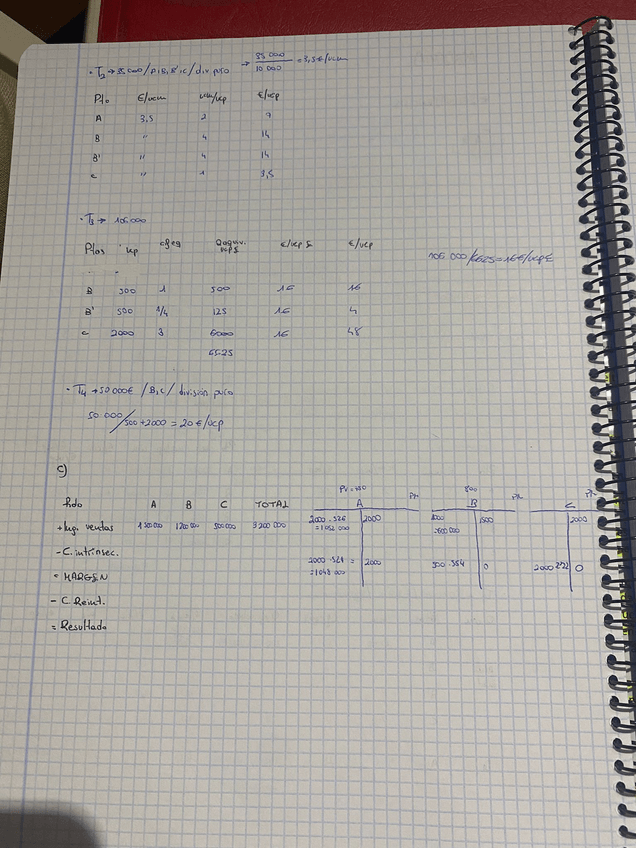 · T2 → 35000/A,B,B',C/div puro → 35 000/10 000 = 3,5 €/ucm
Pto €/ucm ucm/ucp €/ucp
A 3,5 2 7
B " 4 14
B' " 4 14
C " 1 3,5
· T3 → 106000
Ptos ucp cf eq Qequiv. ucp € €/ucp € €/ucp 106 000/6625 = 16 €/ucp €
B 500 1 500 16 16
B' 500 1/4 125 16 4
C 2000 3 6000 16 48
6625
· T4 → 50 000 € / B, C / división puro
50 000/500+2000 = 20 €/ucp
c)
Rdo A B C TOTAL
+ Ing. ventas 1200 000 500 000 3 200 000
- C. intrínsec.
= MARGEN
- C. Reint.
= Resultado
A Pr.
2000 . 526 = 1 052 000 2000
2000 . 524 = 1 048 000 2000
800
B Pr.
600 000
500 . 554 0
C Pr.
2000
2000 0